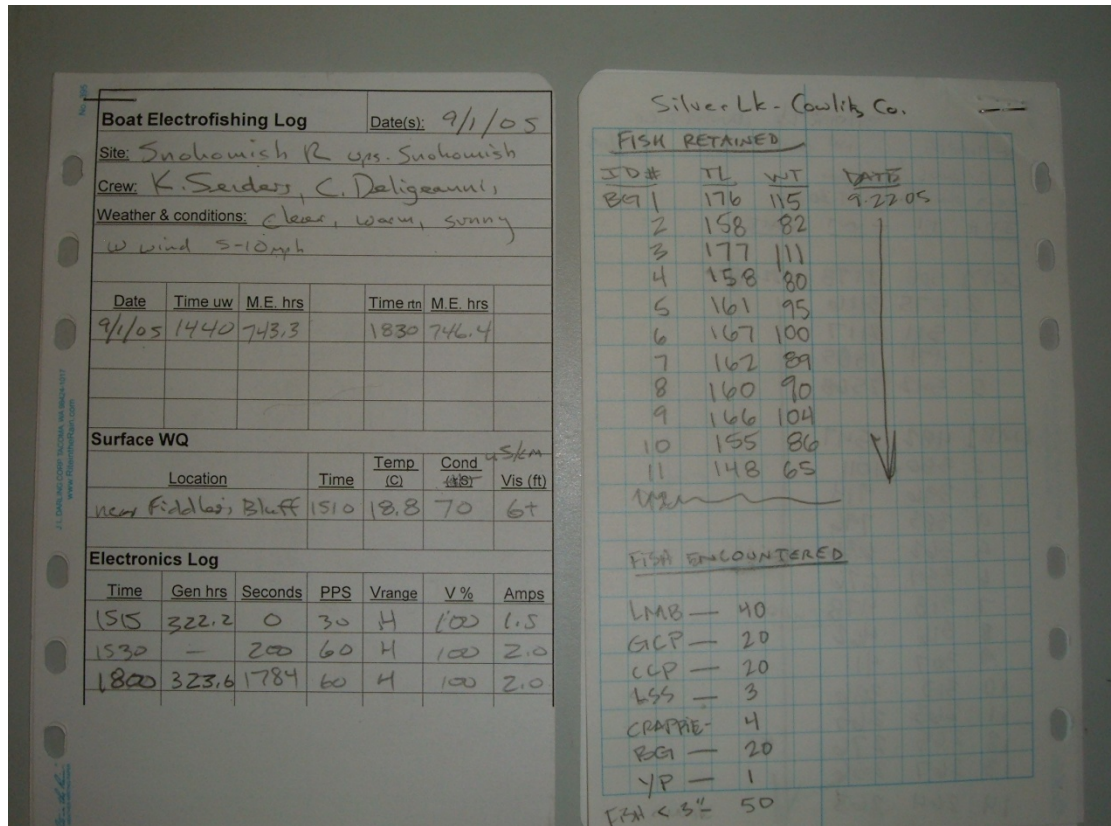 No. 395
Boat Electrofishing Log Date(s): 9/1/05
Site: Snohomish R ups. Snohomish
Crew: K. Seiders, C. Deligeannis,
Weather & conditions: clear, warm, sunny
w wind 5-10mph
Date Time uw M.E. hrs Time rtn M.E. hrs
9/1/05 1440 743.3 1830 746.4
Surface WQ
uS/cm
Location Time Temp (C) Cond Vis (ft)
near Fiddler's Bluff 1510 18.8 70 6+
Electronics Log
Time Gen hrs Seconds PPS Vrange V % Amps
1515 322.2 0 30 H 100 1.5
1530 — 200 60 H 100 2.0
1800 323.6 1784 60 H 100 2.0
J.L. DARLING CORP. TACOMA, WA 98424-1017
www.RiteintheRain.com
Silver Lk - Cowlitz Co.
FISH RETAINED
ID# TL WT DATE
BG 1 176 115 9.22.05
2 158 82
3 177 111
4 158 80
5 161 95
6 167 100
7 162 89
8 160 90
9 166 104
10 155 86
11 148 65
FISH ENCOUNTERED
LMB — 40
GCP — 20
CCP — 20
LSS — 3
CRAPPIE - 4
BG — 20
YP — 1
FISH < 3" 50